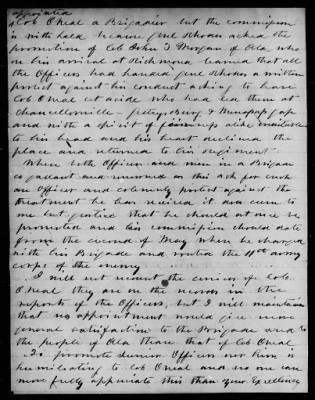 appointed
Col O'Neal a Brigadier but the commission
is withheld because Genl Rhodes asked the
promotion of Col John T Morgan of Ala who
on his arrival at Richmond learned that all
the Officers had handed Genl Rhodes a written
protest against his conduct asking to have
Col O'Neal set aside who had led them at
Chancellorsville - Gettysburg &
and with a spirit of fairness alike
to his head and his heart declined the
place and returned to his regiment
When both Officers and men in a Brigade
so gallant and renowned as this ask for such
an Officer and solemnly protest against the
treatment he has received it does seem to
me but justice that he should at once be
promoted and his commission should date
from the second of May when he charged
with his Brigade and routed the 11th army
corps of the enemy
I will not recount the services of Col
O'Neal they are on the records in the
reports of the Officers, but I will maintain
that no appointment would give more
general satisfaction to the Brigade and to
the people of Ala than that of Col O'Neal
To promote Junior Officers over him is
humiliating to Col O'Neal and no one can
more fully appreciate this than your Excellency